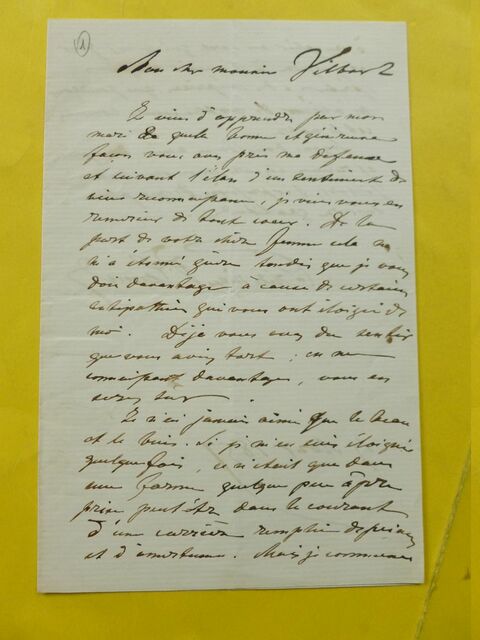 1
Mon cher monsieur Filbert
Je viens d'apprendre par mon
mari de quelle bonne et généreuse
façon vous avez pris ma défense
et suivant l'élan d'un sentiment de
vive reconnaissance, je viens vous en
remercier de tout coeur. De la
part de votre chère femme cela ne
m'a étonné guère tandis que je vous
dois davantage à cause de certaines
antipathies qui vous ont éloigné de
moi. Déjà vous avez du sentir
que vous aviez tort; en me
connaissant davantage, vous en
serez sur.
Je n'ai jamais aimé que le beau
et le bien. Si je m'en suis éloignée
quelquefois, ce n'était que dans
une forme quelque peu âpre
prise peut être dans le courant
d'une carrière remplie de peines
et d'amertume. Mais je